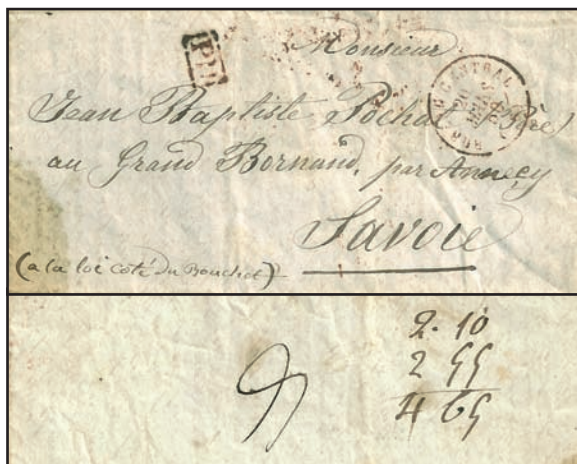 PD
Monsieur
Jean Baptiste Pochat (Père)
au Grand Bornand, par Annecy
Savoie
(a la loi coté du Bouchet)
2. 10
2 55
4 65